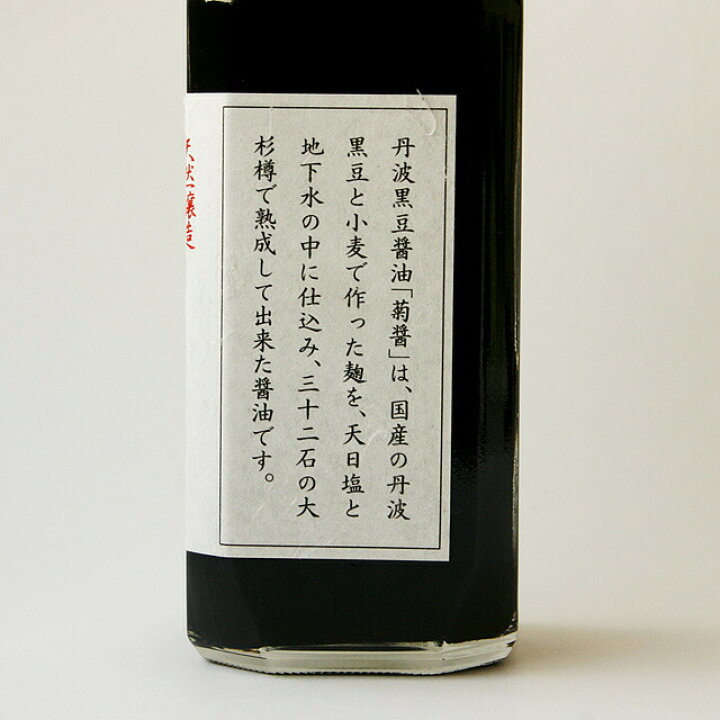 丹波黒豆醤油「菊醤」は、国産の丹波
黒豆と小麦で作った麹を、天日塩と
地下水の中に仕込み、三十二石の大
杉樽で熟成して出来た醤油です。
天然醸造